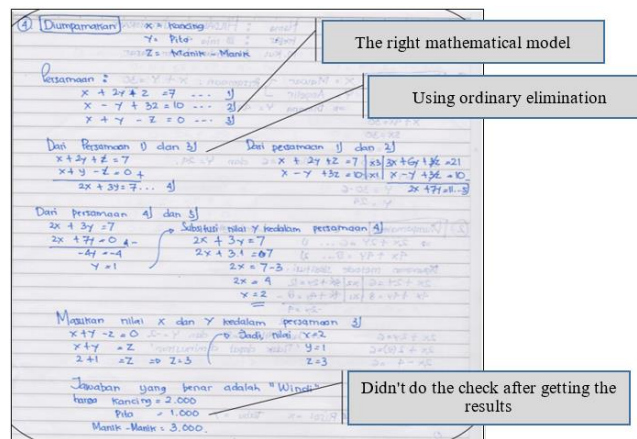 ④ Diumpamakan x = kancing
y = Pita
z = Manik - Manik
The right mathematical model
Persamaan :
x + 2y + z = 7 ... 1)
x - y + 3z = 10 ... 2)
x + y - z = 0 ... 3)
Using ordinary elimination
Dari Persamaan 1) dan 3)
x + 2y + z = 7
x + y - z = 0 +
2x + 3y = 7 ... 4)
Dari persamaan 1) dan 2)
x + 2y + z = 7 | x3 | 3x + 6y + 3z = 21
x - y + 3z = 10 | x1 | x - y + 3z = 10 -
2x + 7y = 11 ... 5)
Dari persamaan 4) dan 5)
2x + 3y = 7
-4y = -4
y = 1
Substitusi nilai y kedalam persamaan 4)
2x + 3y = 7
2x + 3.1 = 7
2x = 7 - 3
2x = 4
x = 2
Masukan nilai x dan y kedalam persamaan 3)
x + y - z = 0
x + y = z
2 + 1 = z => z = 3
Jadi, nilai x = 2
y = 1
z = 3
Jawaban yang benar adalah "Windi"
harga kancing = 2.000
Pita = 1.000
Manik - Manik = 3.000.
Didn't do the check after getting the
results